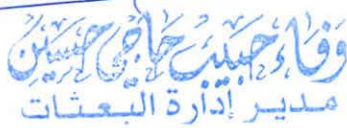 وفاء حبيب حاجي حسين
مدير إدارة البعثات